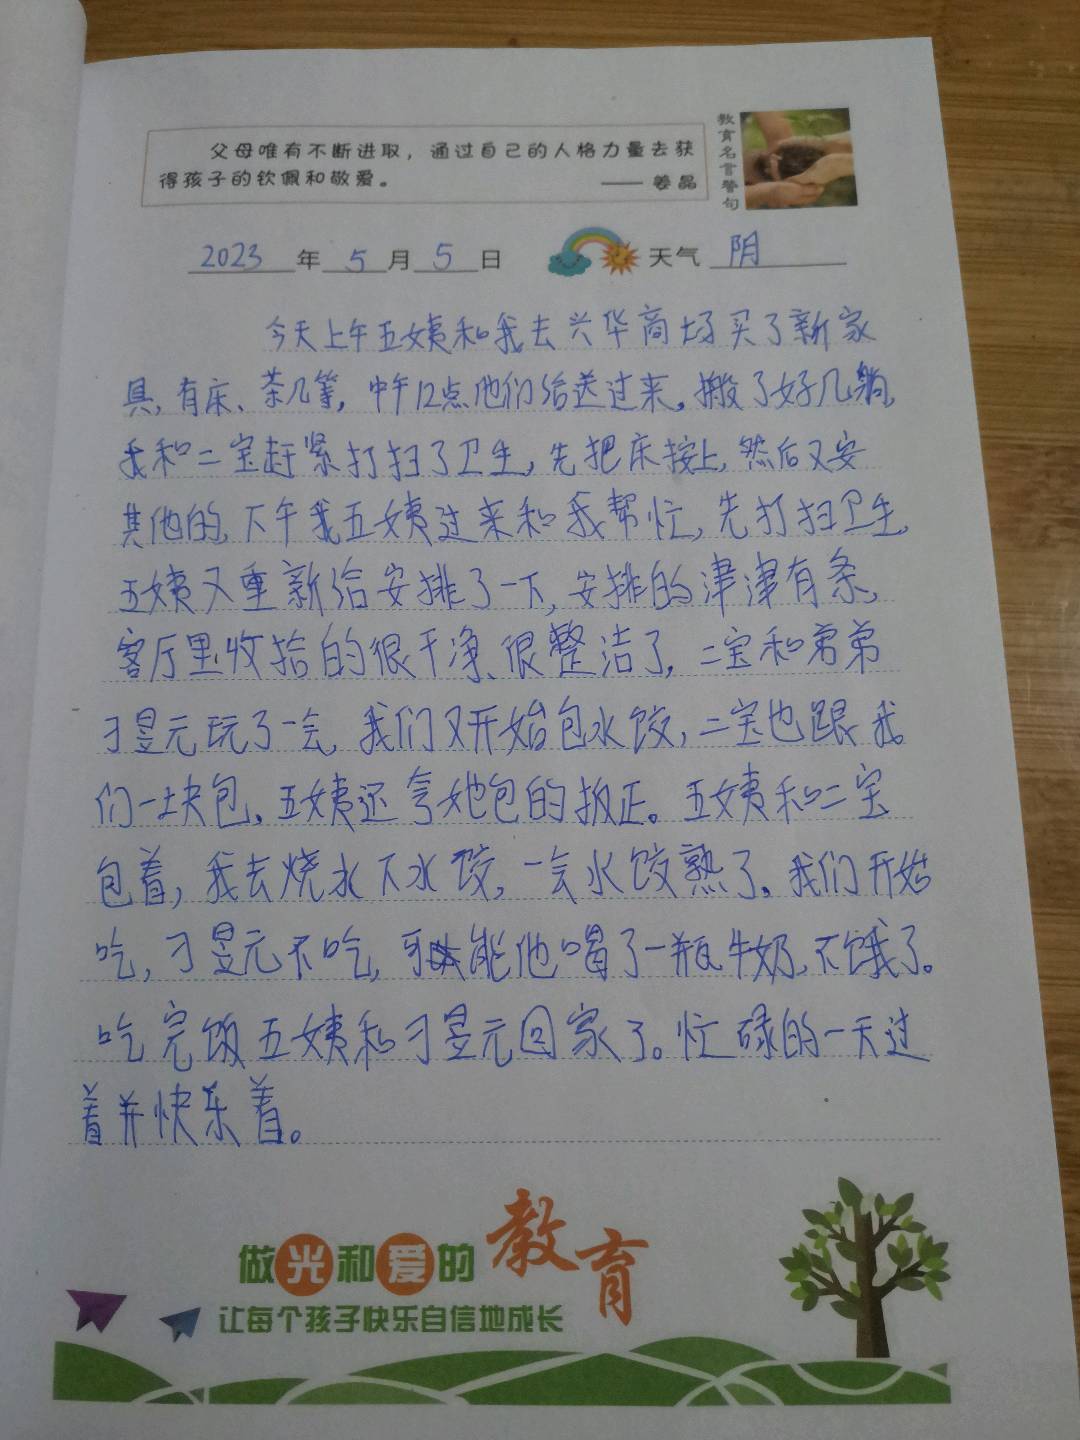 父母唯有不断进取，通过自己的人格力量去获
得孩子的钦佩和敬爱。
—— 姜晶
教育名言警句
2023年5月5日 天气 阴
今天上午五姨和我去兴华商场买了新家
具,有床、茶几等,中午12点他们给送过来。搬了好几趟,
我和二宝赶紧打扫了卫生,先把床按上,然后又安
其他的,下午我五姨过来和我帮忙,先打扫卫生,
五姨又重新给安排了一下,安排的津津有条,
客厅里收拾的很干净、很整洁了,二宝和弟弟
刁昱元玩了一会,我们又开始包水饺,二宝也跟我
们一块包。五姨还夸她包的板正。五姨和二宝
包着,我去烧水下水饺,一会水饺熟了。我们开始
吃,刁昱元不吃,能他喝了一瓶牛奶,不饿了。
吃完饭五姨和刁昱元回家了。忙碌的一天过
着并快乐着。
做光和爱的教育
让每个孩子快乐自信地成长